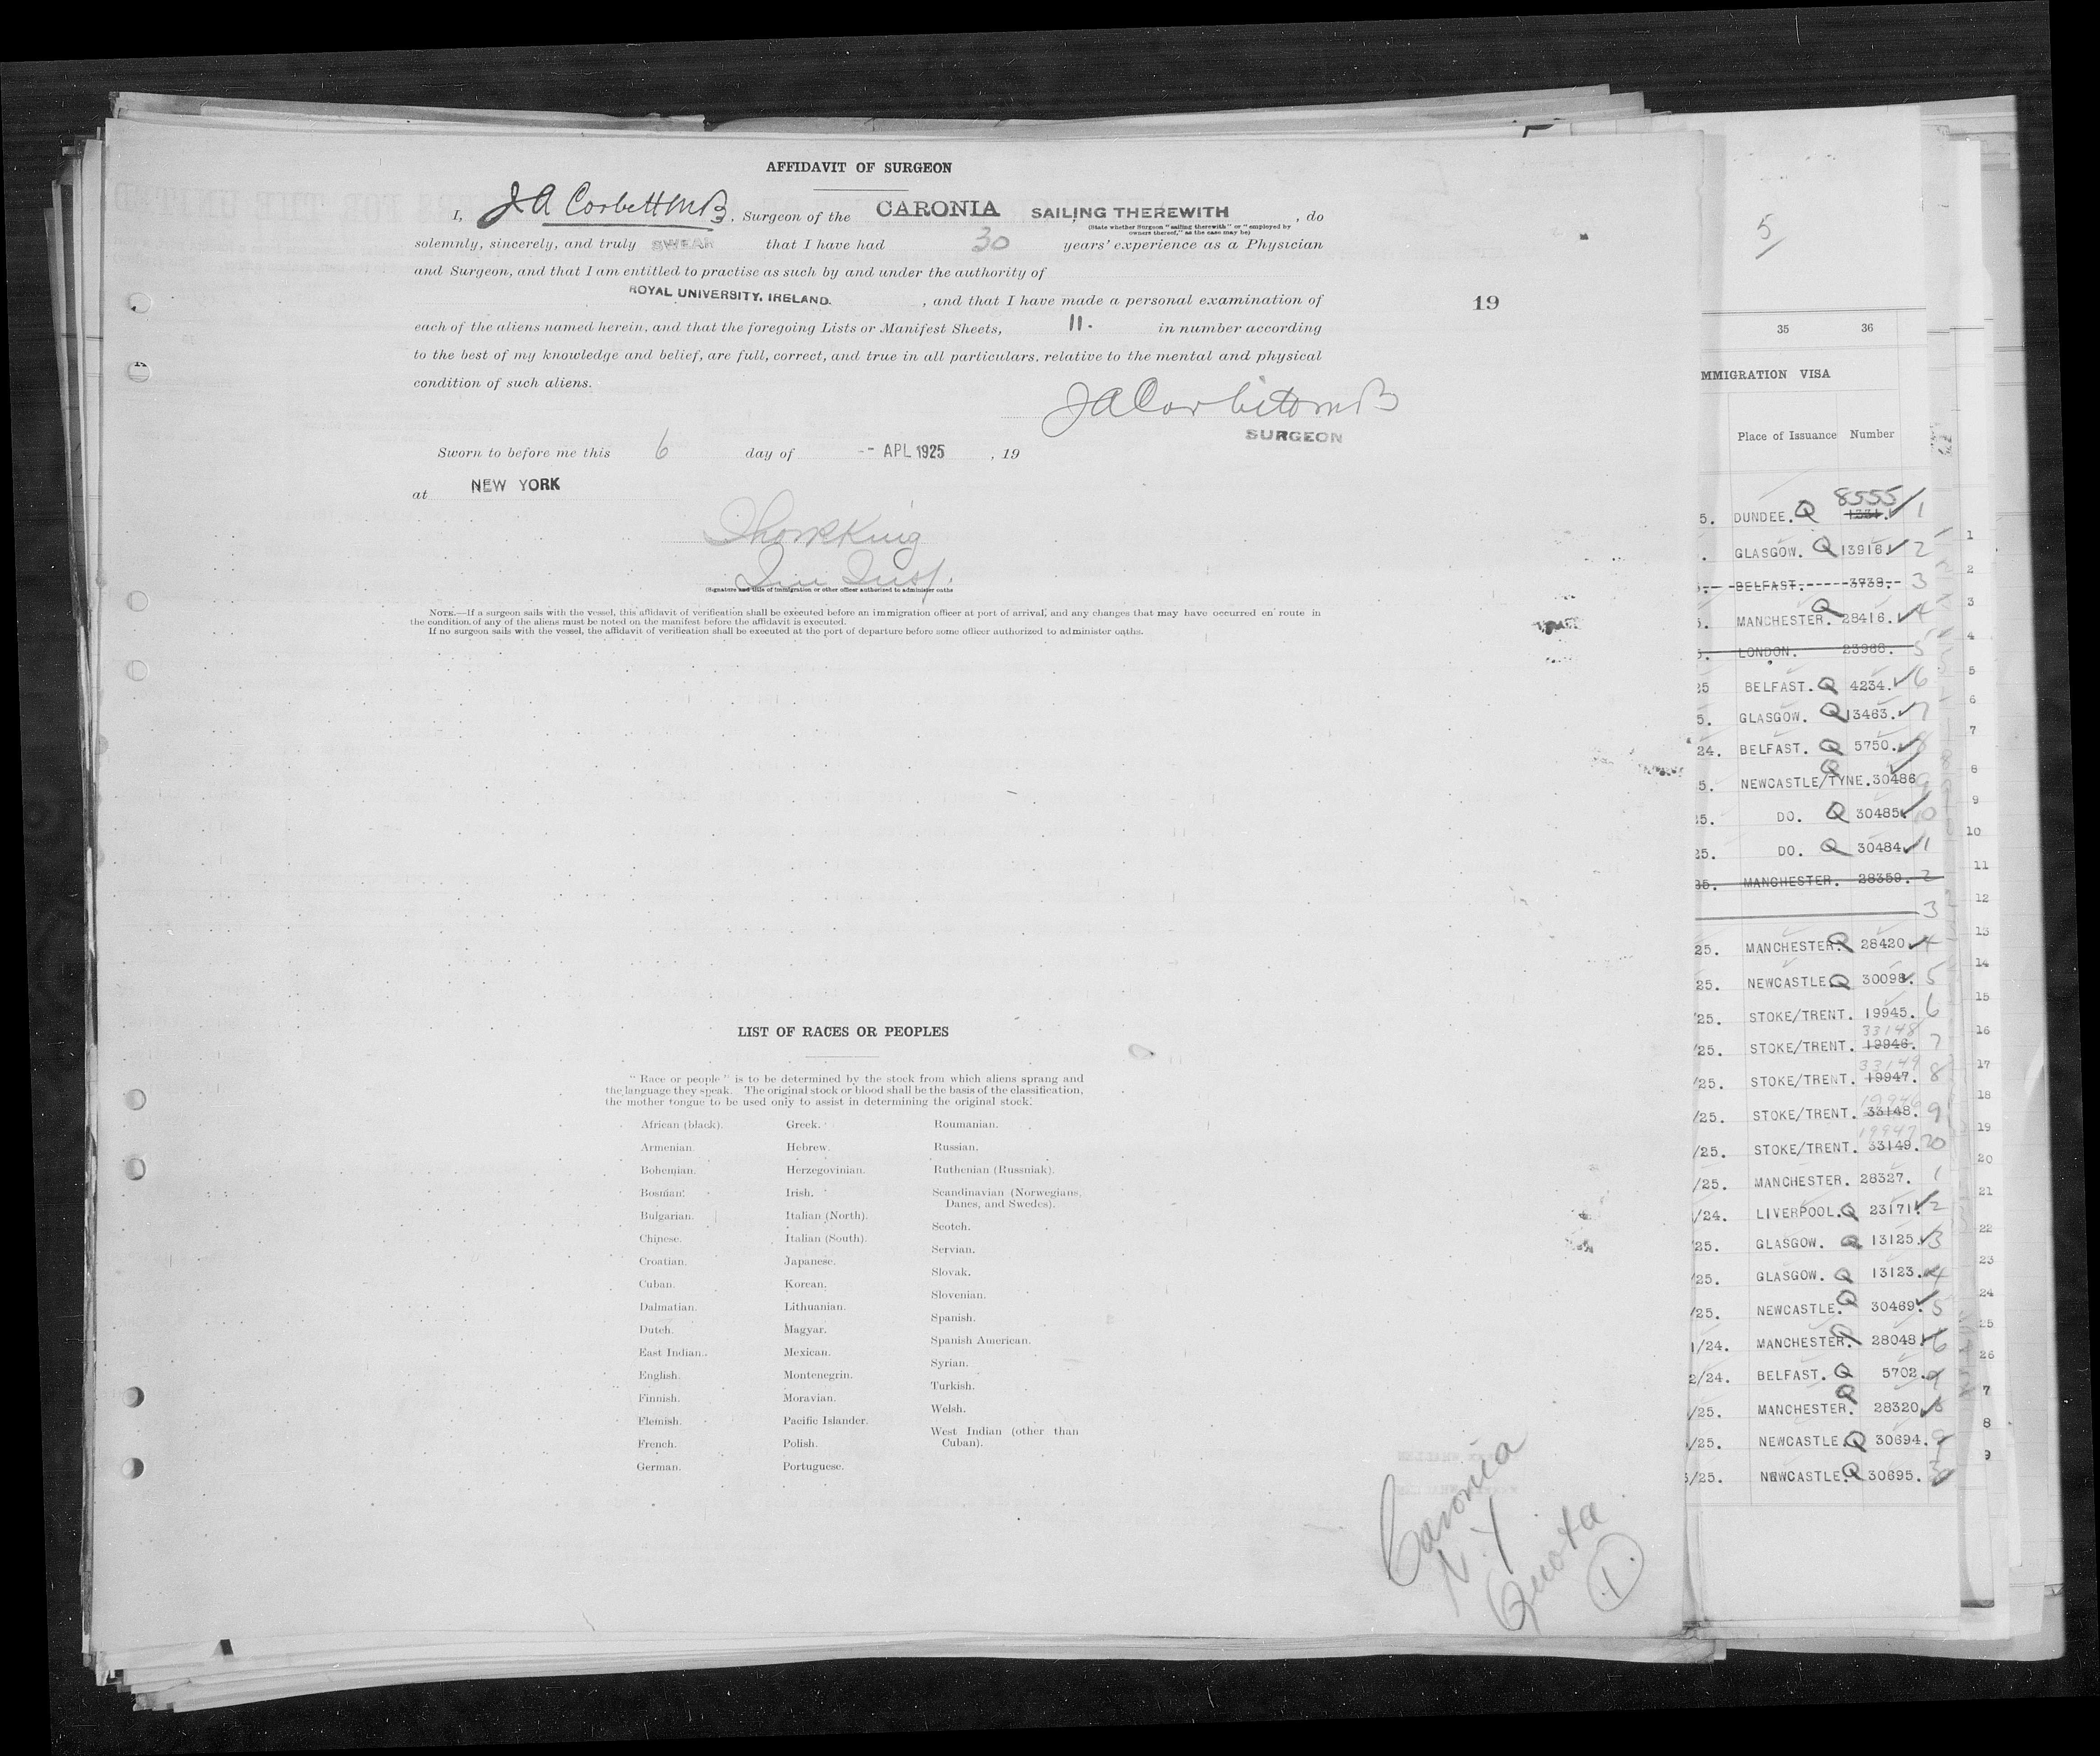 AFFIDAVIT OF SURGEON
I, J A Corbett M B, Surgeon of the CARONIA SAILING THEREWITH, do
(State whether Surgeon "sailing therewith" or "employed by
owners thereof," as the case may be)
solemnly, sincerely, and truly SWEAR that I have had 30 years' experience as a Physician
and Surgeon, and that I am entitled to practise as such by and under the authority of
ROYAL UNIVERSITY, IRELAND. , and that I have made a personal examination of
19
each of the aliens named herein, and that the foregoing Lists or Manifest Sheets, 11. in number according
to the best of my knowledge and belief, are full, correct, and true in all particulars, relative to the mental and physical
condition of such aliens.
J A Corbett M B
SURGEON
Sworn to before me this 6 day of -- APL 1925 , 19
at NEW YORK
King
Imm Insp.
(Signature and title of immigration or other officer authorized to administer oaths
NOTE.—If a surgeon sails with the vessel, this affidavit of verification shall be executed before an immigration officer at port of arrival, and any changes that may have occurred en route in
the condition of any of the aliens must be noted on the manifest before the affidavit is executed.
If no surgeon sails with the vessel, the affidavit of verification shall be executed at the port of departure before some officer authorized to administer oaths.
LIST OF RACES OR PEOPLES
"Race or people" is to be determined by the stock from which aliens sprang and
the language they speak. The original stock or blood shall be the basis of the classification,
the mother tongue to be used only to assist in determining the original stock.
African (black).
Armenian.
Bohemian.
Bosnian.
Bulgarian.
Chinese.
Croatian.
Cuban.
Dalmatian.
Dutch.
East Indian.
English.
Finnish.
Flemish.
French.
German.
Greek.
Hebrew.
Herzegovinian.
Irish.
Italian (North).
Italian (South).
Japanese.
Korean.
Lithuanian.
Magyar.
Mexican.
Montenegrin.
Moravian.
Pacific Islander.
Polish.
Portuguese.
Roumanian.
Russian.
Ruthenian (Russniak).
Scandinavian (Norwegians,
Danes, and Swedes).
Scotch.
Servian.
Slovak.
Slovenian.
Spanish.
Spanish American.
Syrian.
Turkish.
Welsh.
West Indian (other than
Cuban).
Caronia
N.Y
Quota
1
5
35 36
MMIGRATION VISA
Place of Issuance Number
8555
5. DUNDEE. Q 1234. 1
. GLASGOW. Q 13916. 2
BELFAST. 3739. 3
5. MANCHESTER. Q 28416. 4
5. LONDON. 23966. 5
25 BELFAST. Q 4234. 6
5. GLASGOW. Q 13463. 7
24. BELFAST. Q 5750. 8
5. NEWCASTLE/TYNE. Q 30486 9
25. DO. Q 30485. 10
25. DO. Q 30484. 1
25. MANCHESTER. 28359. 2
3
25. MANCHESTER. Q 28420. 4
25. NEWCASTLE. Q 30098. 5
/25. STOKE/TRENT. 19945. 6
33148
/25. STOKE/TRENT. 19946. 7
33149
/25. STOKE/TRENT. 19947. 8
19946
/25. STOKE/TRENT. 33148. 9
19947
/25. STOKE/TRENT. 33149. 20
/25. MANCHESTER. 28327. 1
/24. LIVERPOOL. Q 23171. 2
/25. GLASGOW. Q 13125. 3
/25. GLASGOW. Q 13123. 4
/25. NEWCASTLE. Q 30469. 5
1/24. MANCHESTER. Q 28048. 6
2/24. BELFAST. Q 5702. 7
/25. MANCHESTER. Q 28320. 8
/25. NEWCASTLE. Q 30694. 9
3/25. NEWCASTLE. Q 30695. 30
1
2
3
4
5
6
7
8
9
10
11
12
13
14
15
16
17
18
19
20
21
22
23
24
25
26
7
8
9